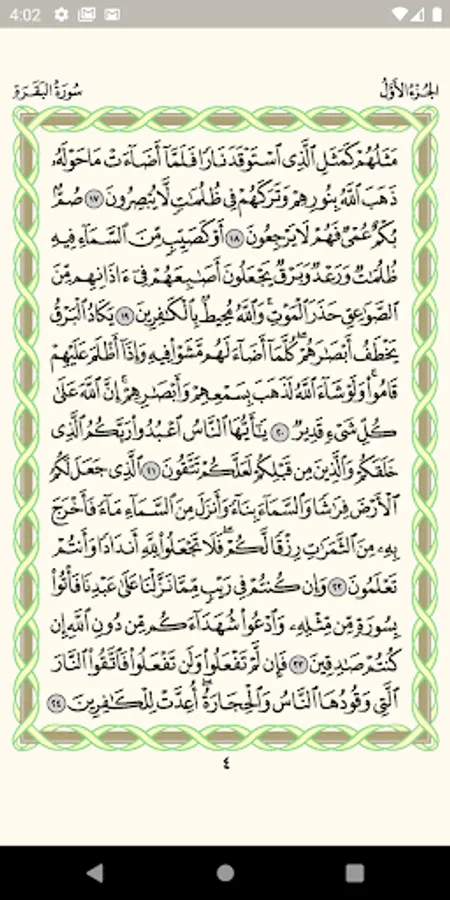 4:02
الجُزْءُ الأَوَّلُ
سُورَةُ البَقَرَةِ
مَثَلُهُمْ كَمَثَلِ ٱلَّذِى ٱسْتَوْقَدَ نَارًا فَلَمَّآ أَضَآءَتْ مَا حَوْلَهُۥ
ذَهَبَ ٱللَّهُ بِنُورِهِمْ وَتَرَكَهُمْ فِى ظُلُمَٰتٍ لَّا يُبْصِرُونَ ١٧ صُمٌّۢ
بُكْمٌ عُمْىٌ فَهُمْ لَا يَرْجِعُونَ ١٨ أَوْ كَصَيِّبٍ مِّنَ ٱلسَّمَآءِ فِيهِ
ظُلُمَٰتٌ وَرَعْدٌ وَبَرْقٌ يَجْعَلُونَ أَصَٰبِعَهُمْ فِىٓ ءَاذَانِهِم مِّنَ
ٱلصَّوَٰعِقِ حَذَرَ ٱلْمَوْتِ ۚ وَٱللَّهُ مُحِيطٌۢ بِٱلْكَٰفِرِينَ ١٩ يَكَادُ ٱلْبَرْقُ
يَخْطَفُ أَبْصَٰرَهُمْ ۖ كُلَّمَآ أَضَآءَ لَهُم مَّشَوْا۟ فِيهِ وَإِذَآ أَظْلَمَ عَلَيْهِمْ
قَامُوا۟ ۚ وَلَوْ شَآءَ ٱللَّهُ لَذَهَبَ بِسَمْعِهِمْ وَأَبْصَٰرِهِمْ ۚ إِنَّ ٱللَّهَ عَلَىٰ
كُلِّ شَىْءٍ قَدِيرٌ ٢٠ يَٰٓأَيُّهَا ٱلنَّاسُ ٱعْبُدُوا۟ رَبَّكُمُ ٱلَّذِى
خَلَقَكُمْ وَٱلَّذِينَ مِن قَبْلِكُمْ لَعَلَّكُمْ تَتَّقُونَ ٢١ ٱلَّذِى جَعَلَ لَكُمُ
ٱلْأَرْضَ فِرَٰشًا وَٱلسَّمَآءَ بِنَآءً وَأَنزَلَ مِنَ ٱلسَّمَآءِ مَآءً فَأَخْرَجَ
بِهِۦ مِنَ ٱلثَّمَرَٰتِ رِزْقًا لَّكُمْ ۖ فَلَا تَجْعَلُوا۟ لِلَّهِ أَندَادًا وَأَنتُمْ
تَعْلَمُونَ ٢٢ وَإِن كُنتُمْ فِى رَيْبٍ مِّمَّا نَزَّلْنَا عَلَىٰ عَبْدِنَا فَأْتُوا۟
بِسُورَةٍ مِّن مِّثْلِهِۦ وَٱدْعُوا۟ شُهَدَآءَكُم مِّن دُونِ ٱللَّهِ إِن
كُنتُمْ صَٰدِقِينَ ٢٣ فَإِن لَّمْ تَفْعَلُوا۟ وَلَن تَفْعَلُوا۟ فَٱتَّقُوا۟ ٱلنَّارَ
ٱلَّتِى وَقُودُهَا ٱلنَّاسُ وَٱلْحِجَارَةُ ۖ أُعِدَّتْ لِلْكَٰفِرِينَ ٢٤
٤